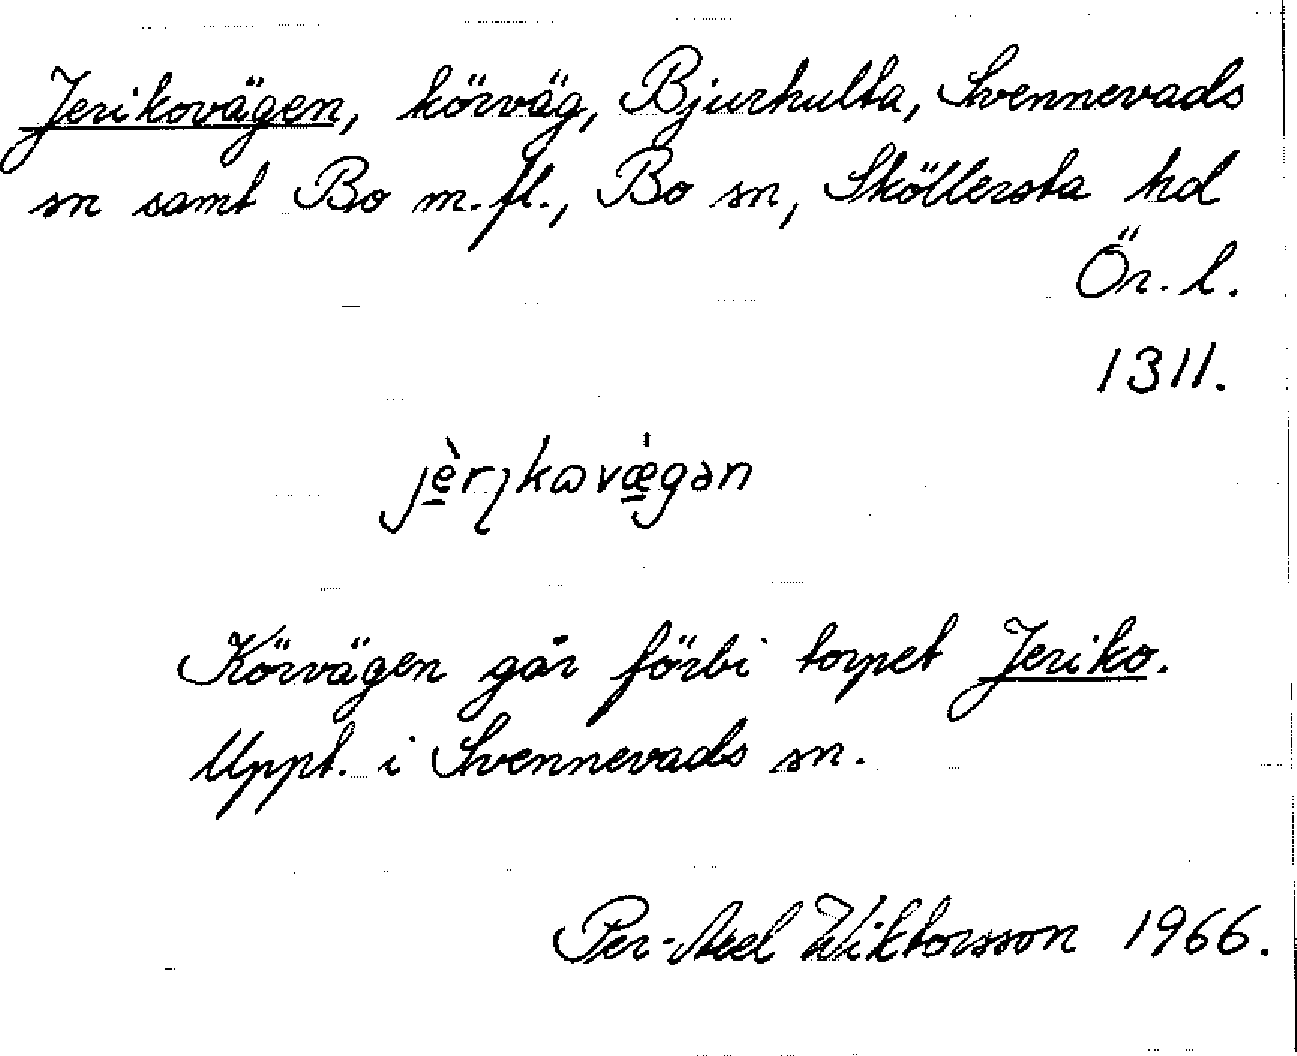 Jerikovägen, körväg, Bjurhulta, Svennevads
sn samt Bo m.fl., Bo sn, Sköllersta hd
Ör. l.
1311.
jè̱rıkωvæ̱̍gən
Körvägen går förbi torpet Jeriko.
Uppt. i Svennevads sn.
Per-Axel Wiktorsson 1966.